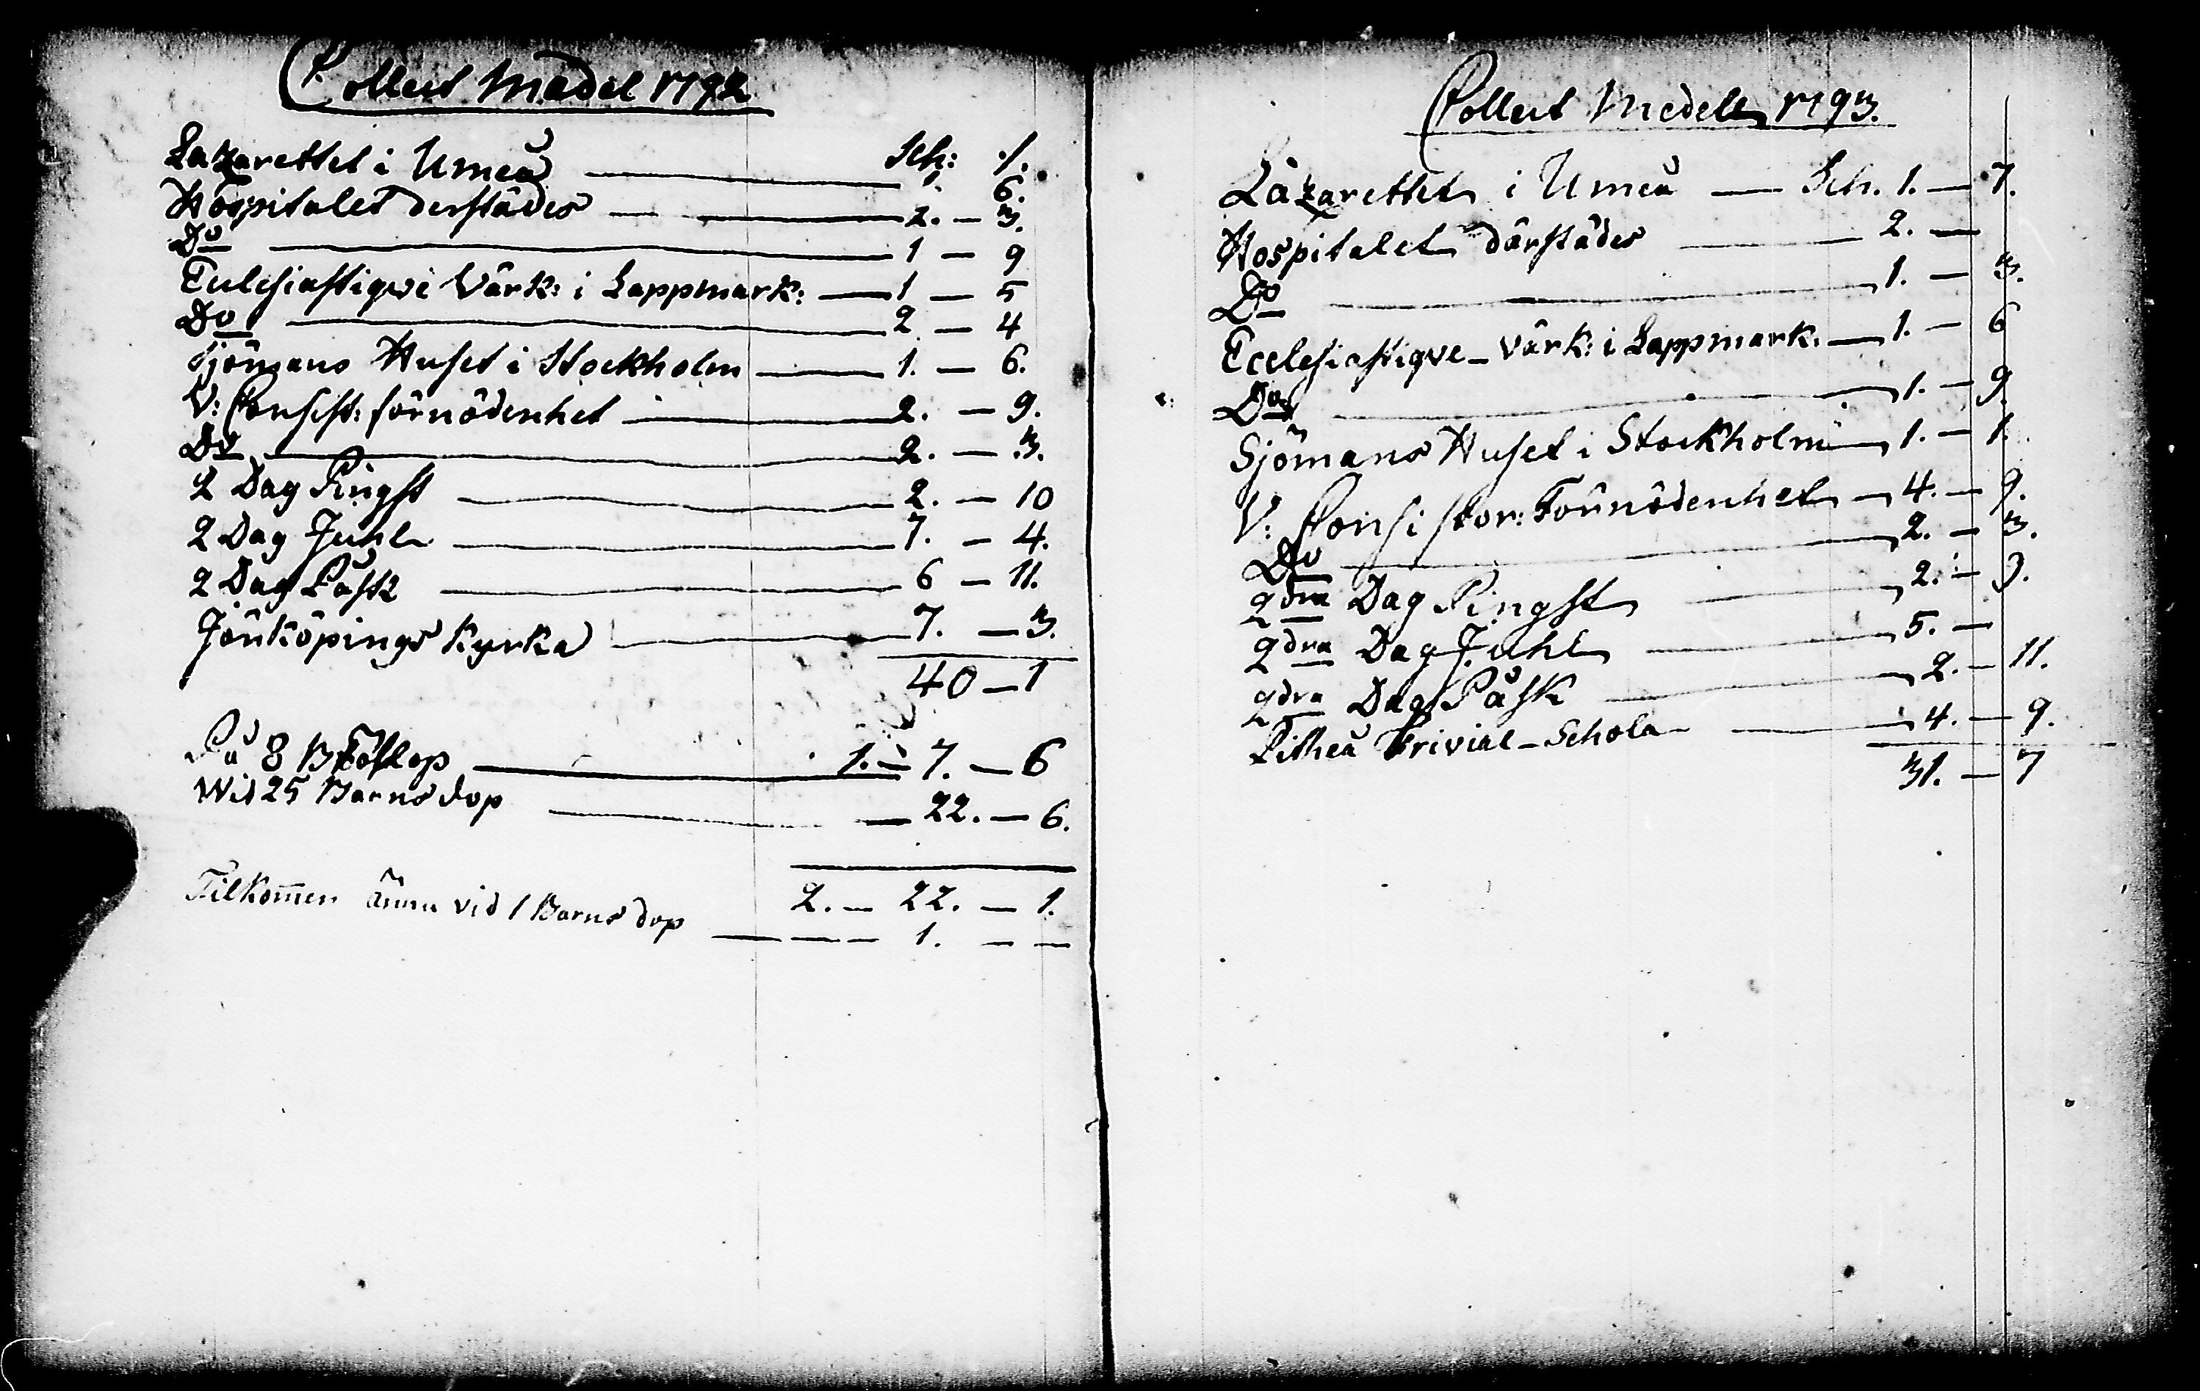 Collect Medel 1792
Sch: ./.
Lazarettet i Umeå — 1. 6.
Hospitalet derstädes — 2. — 3.
Do — 1 — 9
Eclesiastiqve Värk: i Lappmark: — 1 — 5
Do — 2 — 4
Sjömans Huset i Stockholm — 1. — 6.
V: Consist: förnödenhet — 2. — 9.
Do — 2. — 3.
2 Dag Pingst — 2. — 10
2 Dag Juhl — 7. — 4.
2 Dag Påsk — 6 — 11.
Jönköpings Kyrka — 7. — 3.
40 — 1
På 8 Bröllop — 1. — 7. — 6
Wid 25 Barns dop — 22. — 6.
2. — 22. — 1.
Tilkom̄en ännu vid 1 Barns dop — — — 1. — —
Collect Medell 1793.
Lazarettet i Umeå — Sch. 1. — 7.
Hospitalet därstädes — 2. —
Do — 1. — 3.
Ecclesiastiqve Värk: i Lappmark. — 1. — 6
Do — 1. — 9.
Sjömans Huset i Stockholm — 1. — 1.
V: Consistor: Förnödenhet — 4. — 9.
Do — 2. — 3.
2dra Dag Pingst — 2. — 9.
2dra Dag Juhl — 5. —
2dra Dag Påsk — 2. — 11.
Pitheå Trivial-Schola — 4. — 9.
31. — 7